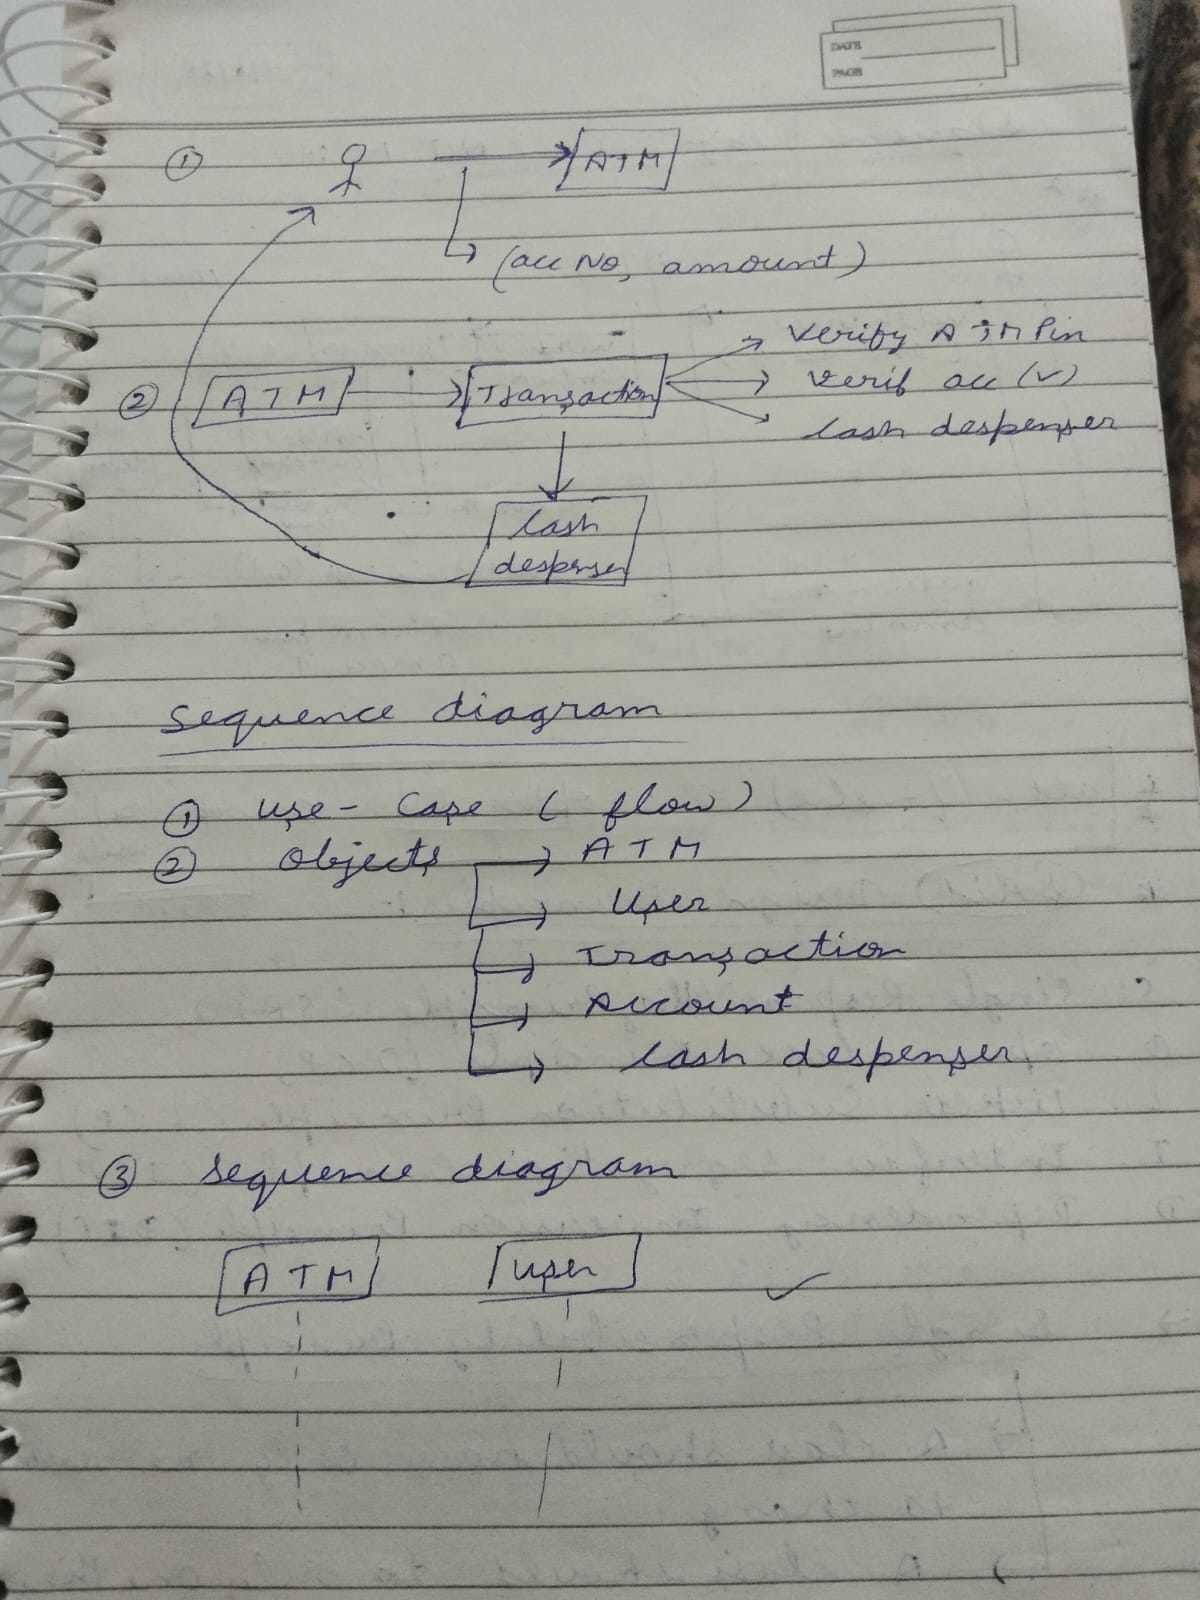 DATE
PAGE
① ATM
(acc No, amount)
Verify ATM Pin
② ATM Transaction verif acc (v)
Cash despenser
Cash
despenser
Sequence diagram
① Use-Case (flow)
② Objects ATM
User
Transaction
Account
Cash despenser.
③ Sequence diagram
ATM User